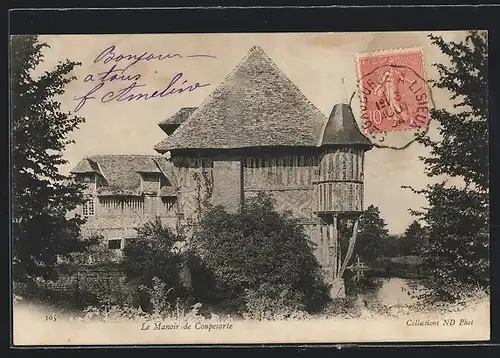 Bonjour
à tous
f. Amélin
LISIEUX
10
105
Le Manoir de Coupesarte
Collections ND Phot